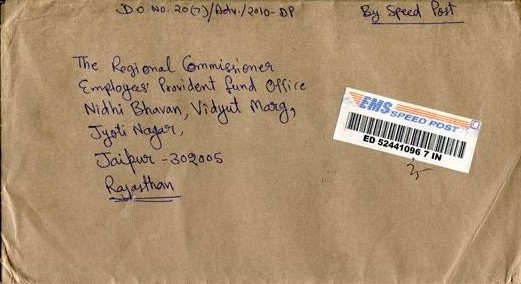 D.O. No. 20(7)/Adv./2010-DP
By Speed Post
The Regional Commissioner
Employees' Provident Fund Office
Nidhi Bhavan, Vidyut Marg,
Jyoti Nagar,
Jaipur - 302005
Rajasthan
EMS SPEED POST
ED 52441096 7 IN